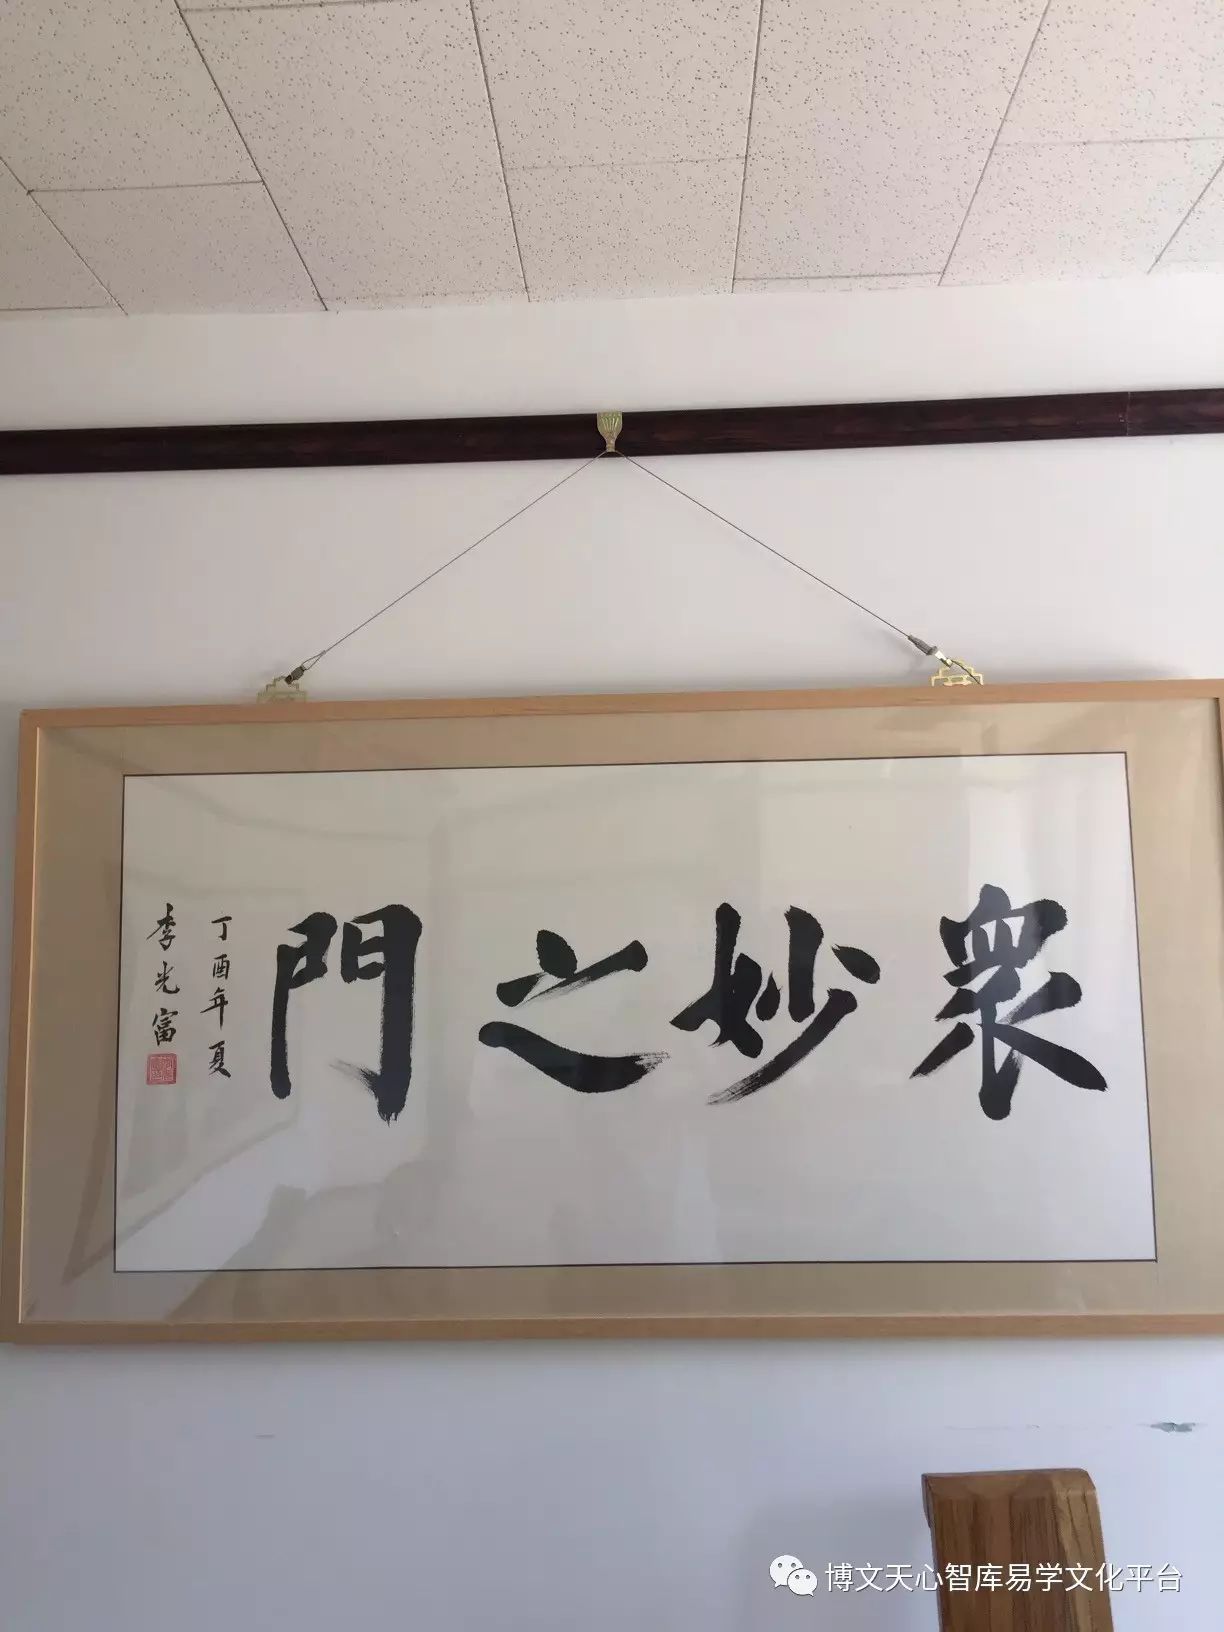 眾妙之門
丁酉年夏
李光富
博文天心智库易学文化平台